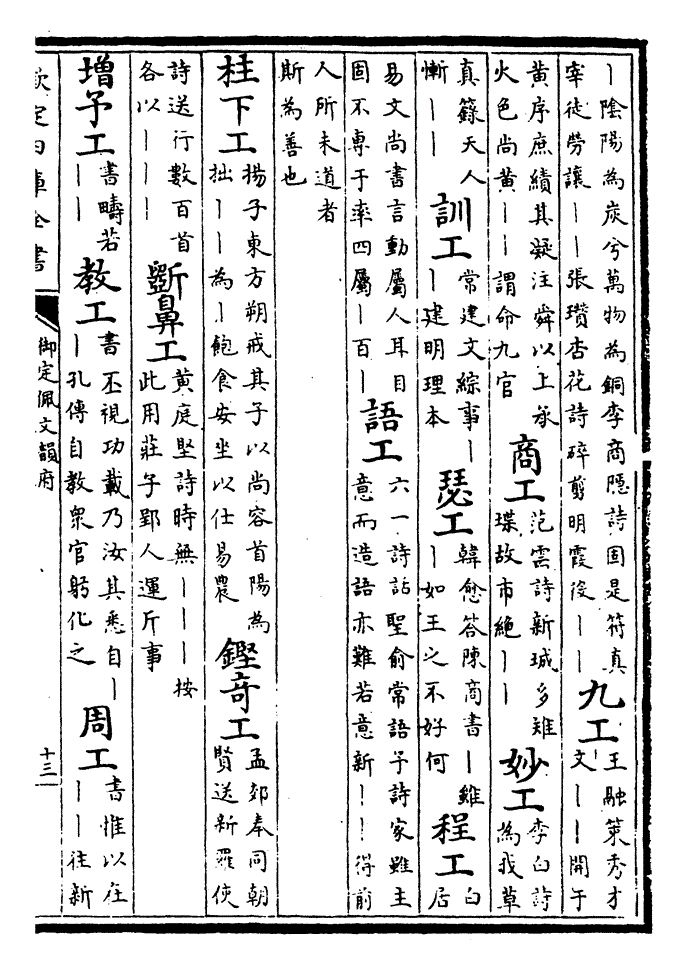 ｜陰陽為炭兮萬物為銅李商隱詩固是符真
宰徒勞讓｜｜張瓚杏花詩碎剪明霞後｜｜
九工
王融策秀才
文｜｜開于
黃序庶績其凝注舜以上承
火色尚黃｜｜謂命九官
商工
范雲詩新珹多雉
璞故市絕｜｜
妙工
李白詩
為我草
真籙天人
慚｜｜
訓工
常建文綜事｜
｜建明理本
瑟工
韓愈答陳商書｜雖
｜如王之不好何
程工
白
居
易文尚書言動屬人耳目
固不専于率四屬｜百｜
語工
六一詩話聖俞常語予詩家雖主
意而造語亦難若意新｜｜得前
人所未道者
斯為善也
柱下工
揚子東方朔戒其子以尚容首陽為
拙｜｜為｜飽食安坐以仕易農
鏗奇工
孟郊奉同朝
賢送新羅使
詩送行數百首
各以｜｜｜
斵鼻工
黃庭堅詩時無｜｜｜按
此用莊子郢人運斤事
增予工
書疇若
｜｜
教工
書丕視功載乃汝其悉自｜
｜孔傳自教衆官躬化之
周工
書惟以在
｜｜往新
欽定四庫全書
御定佩文韻府
十三